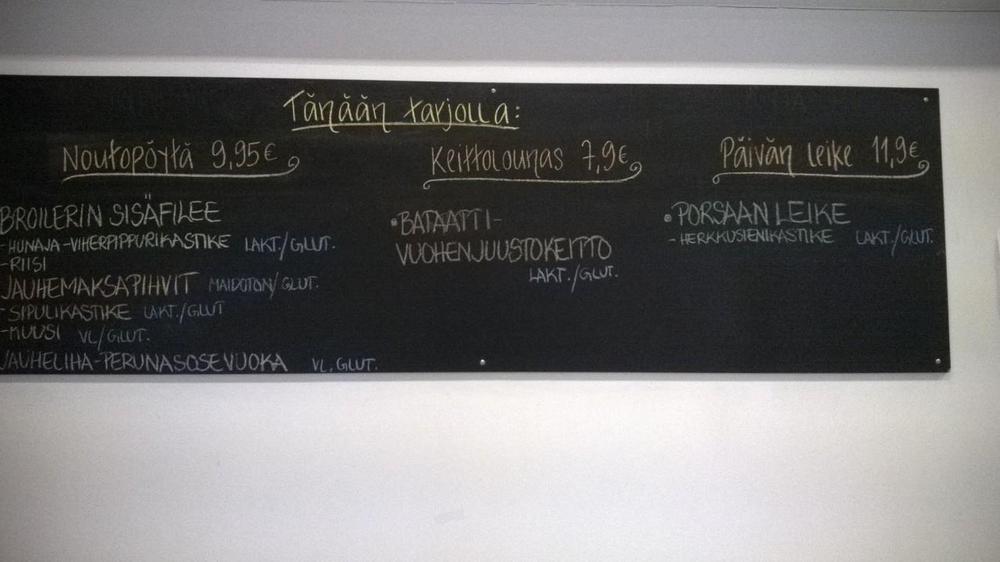 Tänään tarjolla:
Noutopöytä 9,95€
BROILERIN SISÄFILEE
-HUNAJA-VIHERPIPPURIKASTIKE LAKT./GLUT.
-RIISI
JAUHEMAKSAPIHVIT MAIDOTON/GLUT.
-SIPULIKASTIKE LAKT./GLUT
-MUUSI VL/GLUT.
JAUHELIHA-PERUNASOSEVUOKA VL, GLUT.
Keittolounas 7,9€
•BATAATTI-
VUOHENJUUSTOKEITTO
LAKT./GLUT.
Päivän leike 11,9€
•PORSAAN LEIKE
-HERKKUSIENIKASTIKE LAKT./GLUT.